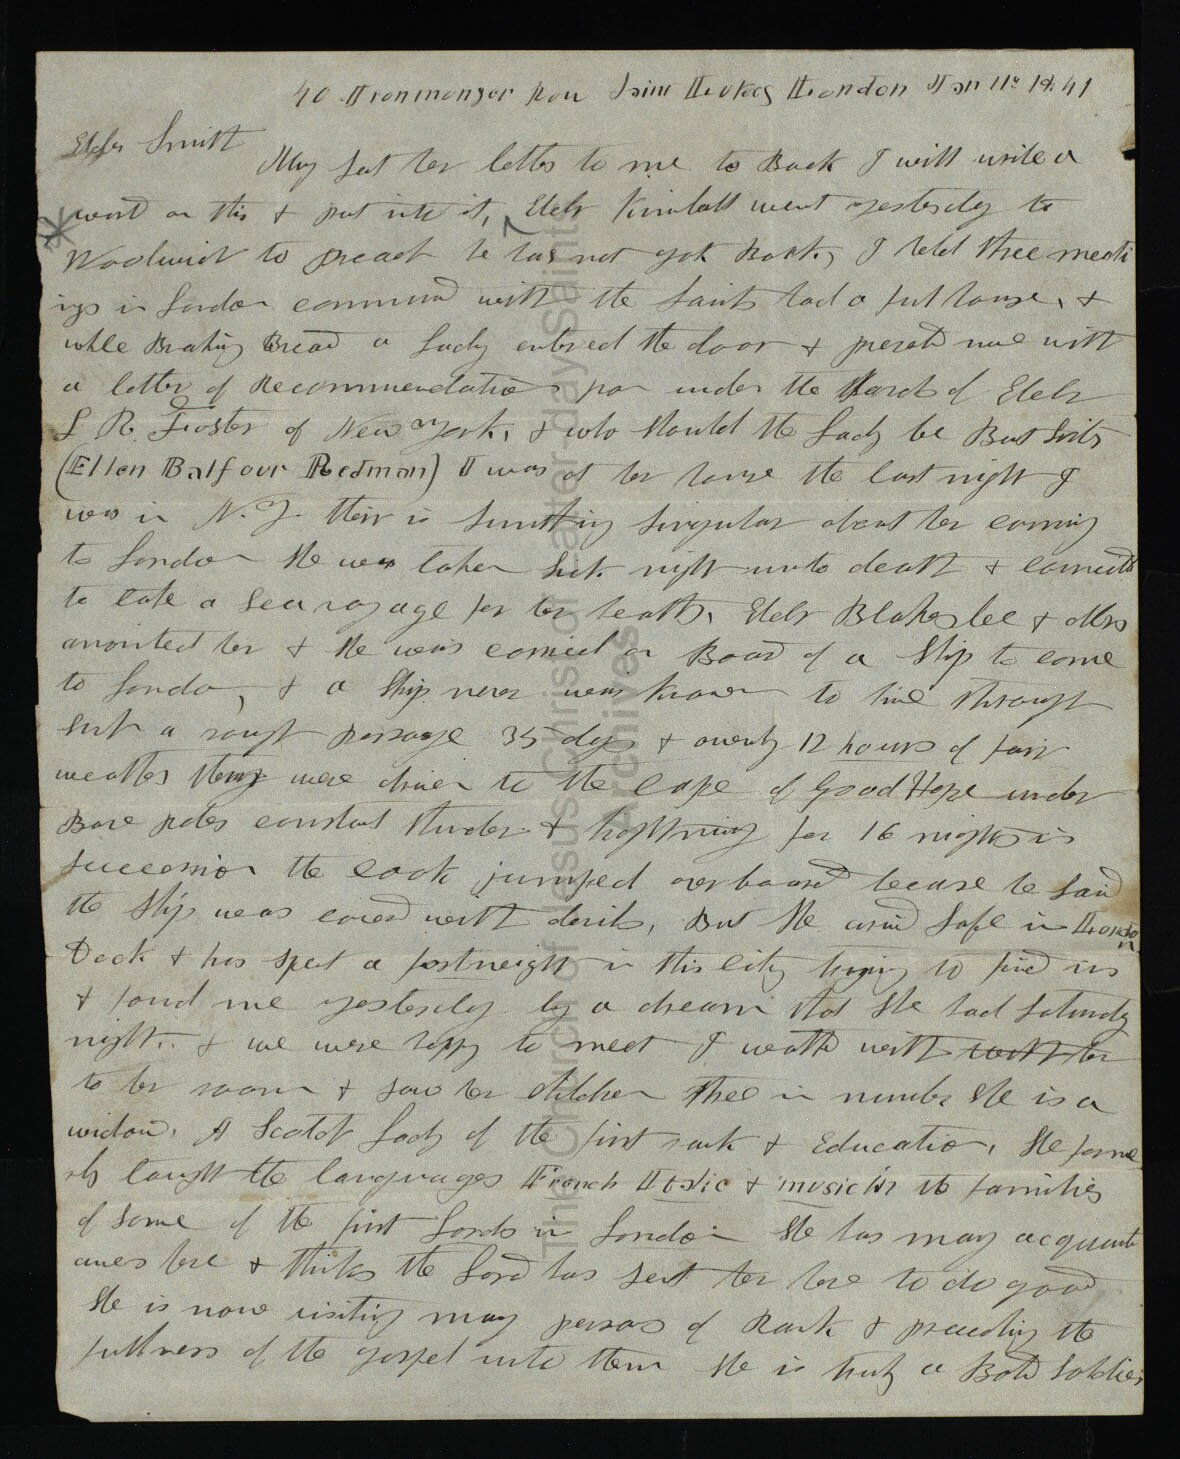 40 Ironmonger Row Saint Lukes London Jan 11th 1841
Elder Smith
Mary sent her letter to me to Back I will write a
word on this & put into it, Eldr Kimball went yesterday to
Woolwich to preach he has not got Back, I held three meeti
ngs in London communed with the Saints had a full house, &
while Braking Bread a Lady entered the door & presetd me with
a letter of Recommendation from under the Hand of Eldr
L R Foster of New York, & who should the Lady be But Sister
(Ellen Balfour Redman) I was at her house the last night I
was in N.Y. their is sumthing singular about her coming
to London She was taken sick nigh unto death & counciled
to take a sea voyage for her health, Eldr Blakeslee & others
anointed her & she was carried on Board of a Ship to come
to London, & a Ship never was known to live through
such a rough passage 35 days & ownly 12 hours of fair
weather they were driven to the cape of Good Hope under
Bare poles constant thunder & lightning for 16 nights in
succession the cook jumped overboard because he said
the Ship was coverd with devils, But she arived safe in London
Dock & has spent a fortneight in this city trying to find us
& found me yesterday by a dream that she had Saturday
night. & we were happy to meet I walked with with her
to her room & saw her children three in number She is a
widow, A Scotch Lady of the first rank & Education, She forme
rly taught the languages French Italic & music in the families
of some of the first Lords in London She has many acquaint
ances here & thinks the Lord has sent her here to do good
She is now visiting many persons of Rank & preaching the
fullness of the gospel unto them She is truly a Bold Soldier
The Church of Jesus Christ of Latter-day Saints
Archives